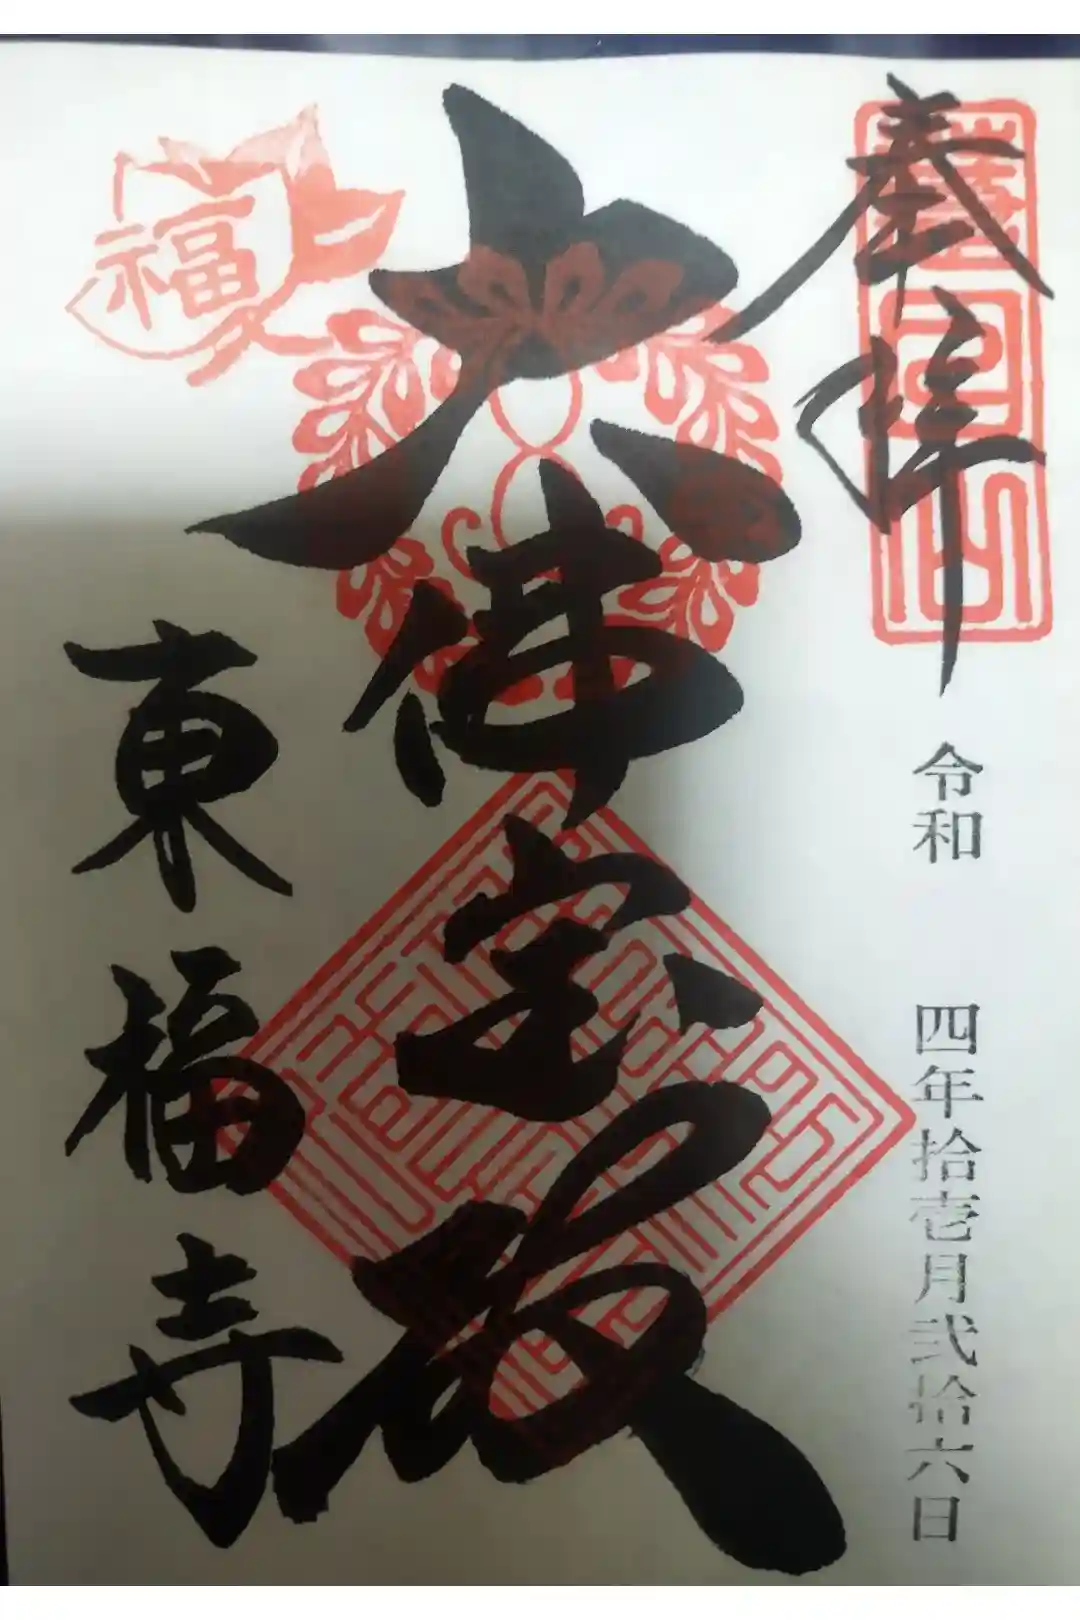 奉拝
令和 四年拾壱月弐拾六日
大佛宝殿
東福寺
福